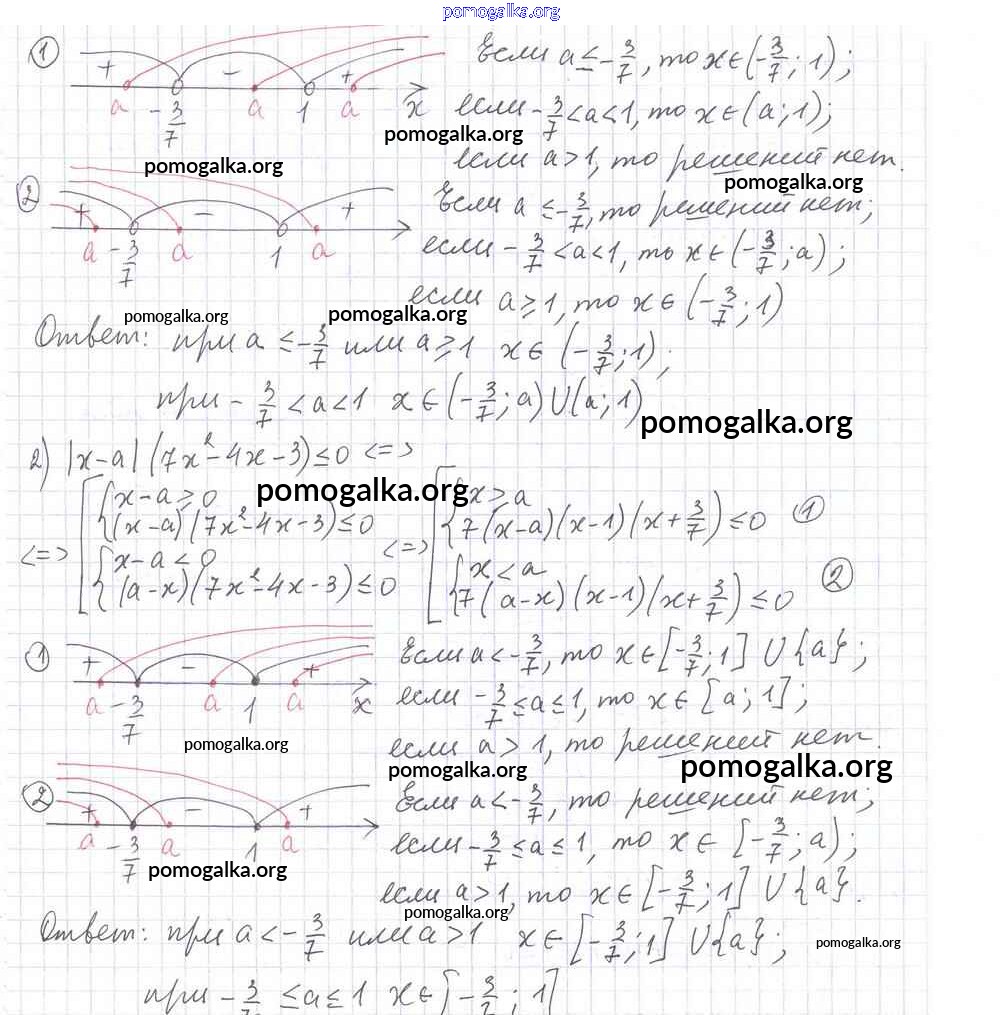 pomogalka.org
① + a -3/7 − a 1 + a x Если a ≤ -3/7, то x∈(-3/7; 1);
если -3/7 < a < 1, то x∈(a; 1);
pomogalka.org
pomogalka.org
если a > 1, то решений нет.
pomogalka.org
② + a -3/7 − a 1 + a Если a ≤ -3/7, то решений нет;
если -3/7 < a < 1, то x∈(-3/7; a);
если a ≥ 1, то x∈(-3/7; 1)
pomogalka.org pomogalka.org
Ответ: при a ≤ -3/7 или a ≥ 1 x∈(-3/7; 1);
при -3/7 < a < 1 x∈(-3/7; a)∪(a; 1)
pomogalka.org
2) |x-a|(7x²-4x-3) ≤ 0 <=>
pomogalka.org
<=> [ { x-a ≥ 0
(x-a)(7x²-4x-3) ≤ 0
{ x-a < 0
(a-x)(7x²-4x-3) ≤ 0
<=> [ { x ≥ a
7(x-a)(x-1)(x+3/7) ≤ 0 ①
{ x < a
7(a-x)(x-1)(x+3/7) ≤ 0 ②
① + a -3/7 − a 1 a + x Если a < -3/7, то x∈[-3/7; 1] ∪{a};
если -3/7 ≤ a ≤ 1, то x∈[a; 1];
pomogalka.org
если a > 1, то решений нет.
pomogalka.org pomogalka.org
② + a -3/7 − a 1 a + Если a < -3/7, то решений нет;
если -3/7 ≤ a ≤ 1, то x∈[-3/7; a);
pomogalka.org
если a > 1, то x∈[-3/7; 1] ∪{a}.
pomogalka.org
Ответ: при a < -3/7 или a > 1 x∈[-3/7; 1] ∪{a};
pomogalka.org
при -3/7 ≤ a ≤ 1 x∈[-3/7; 1]